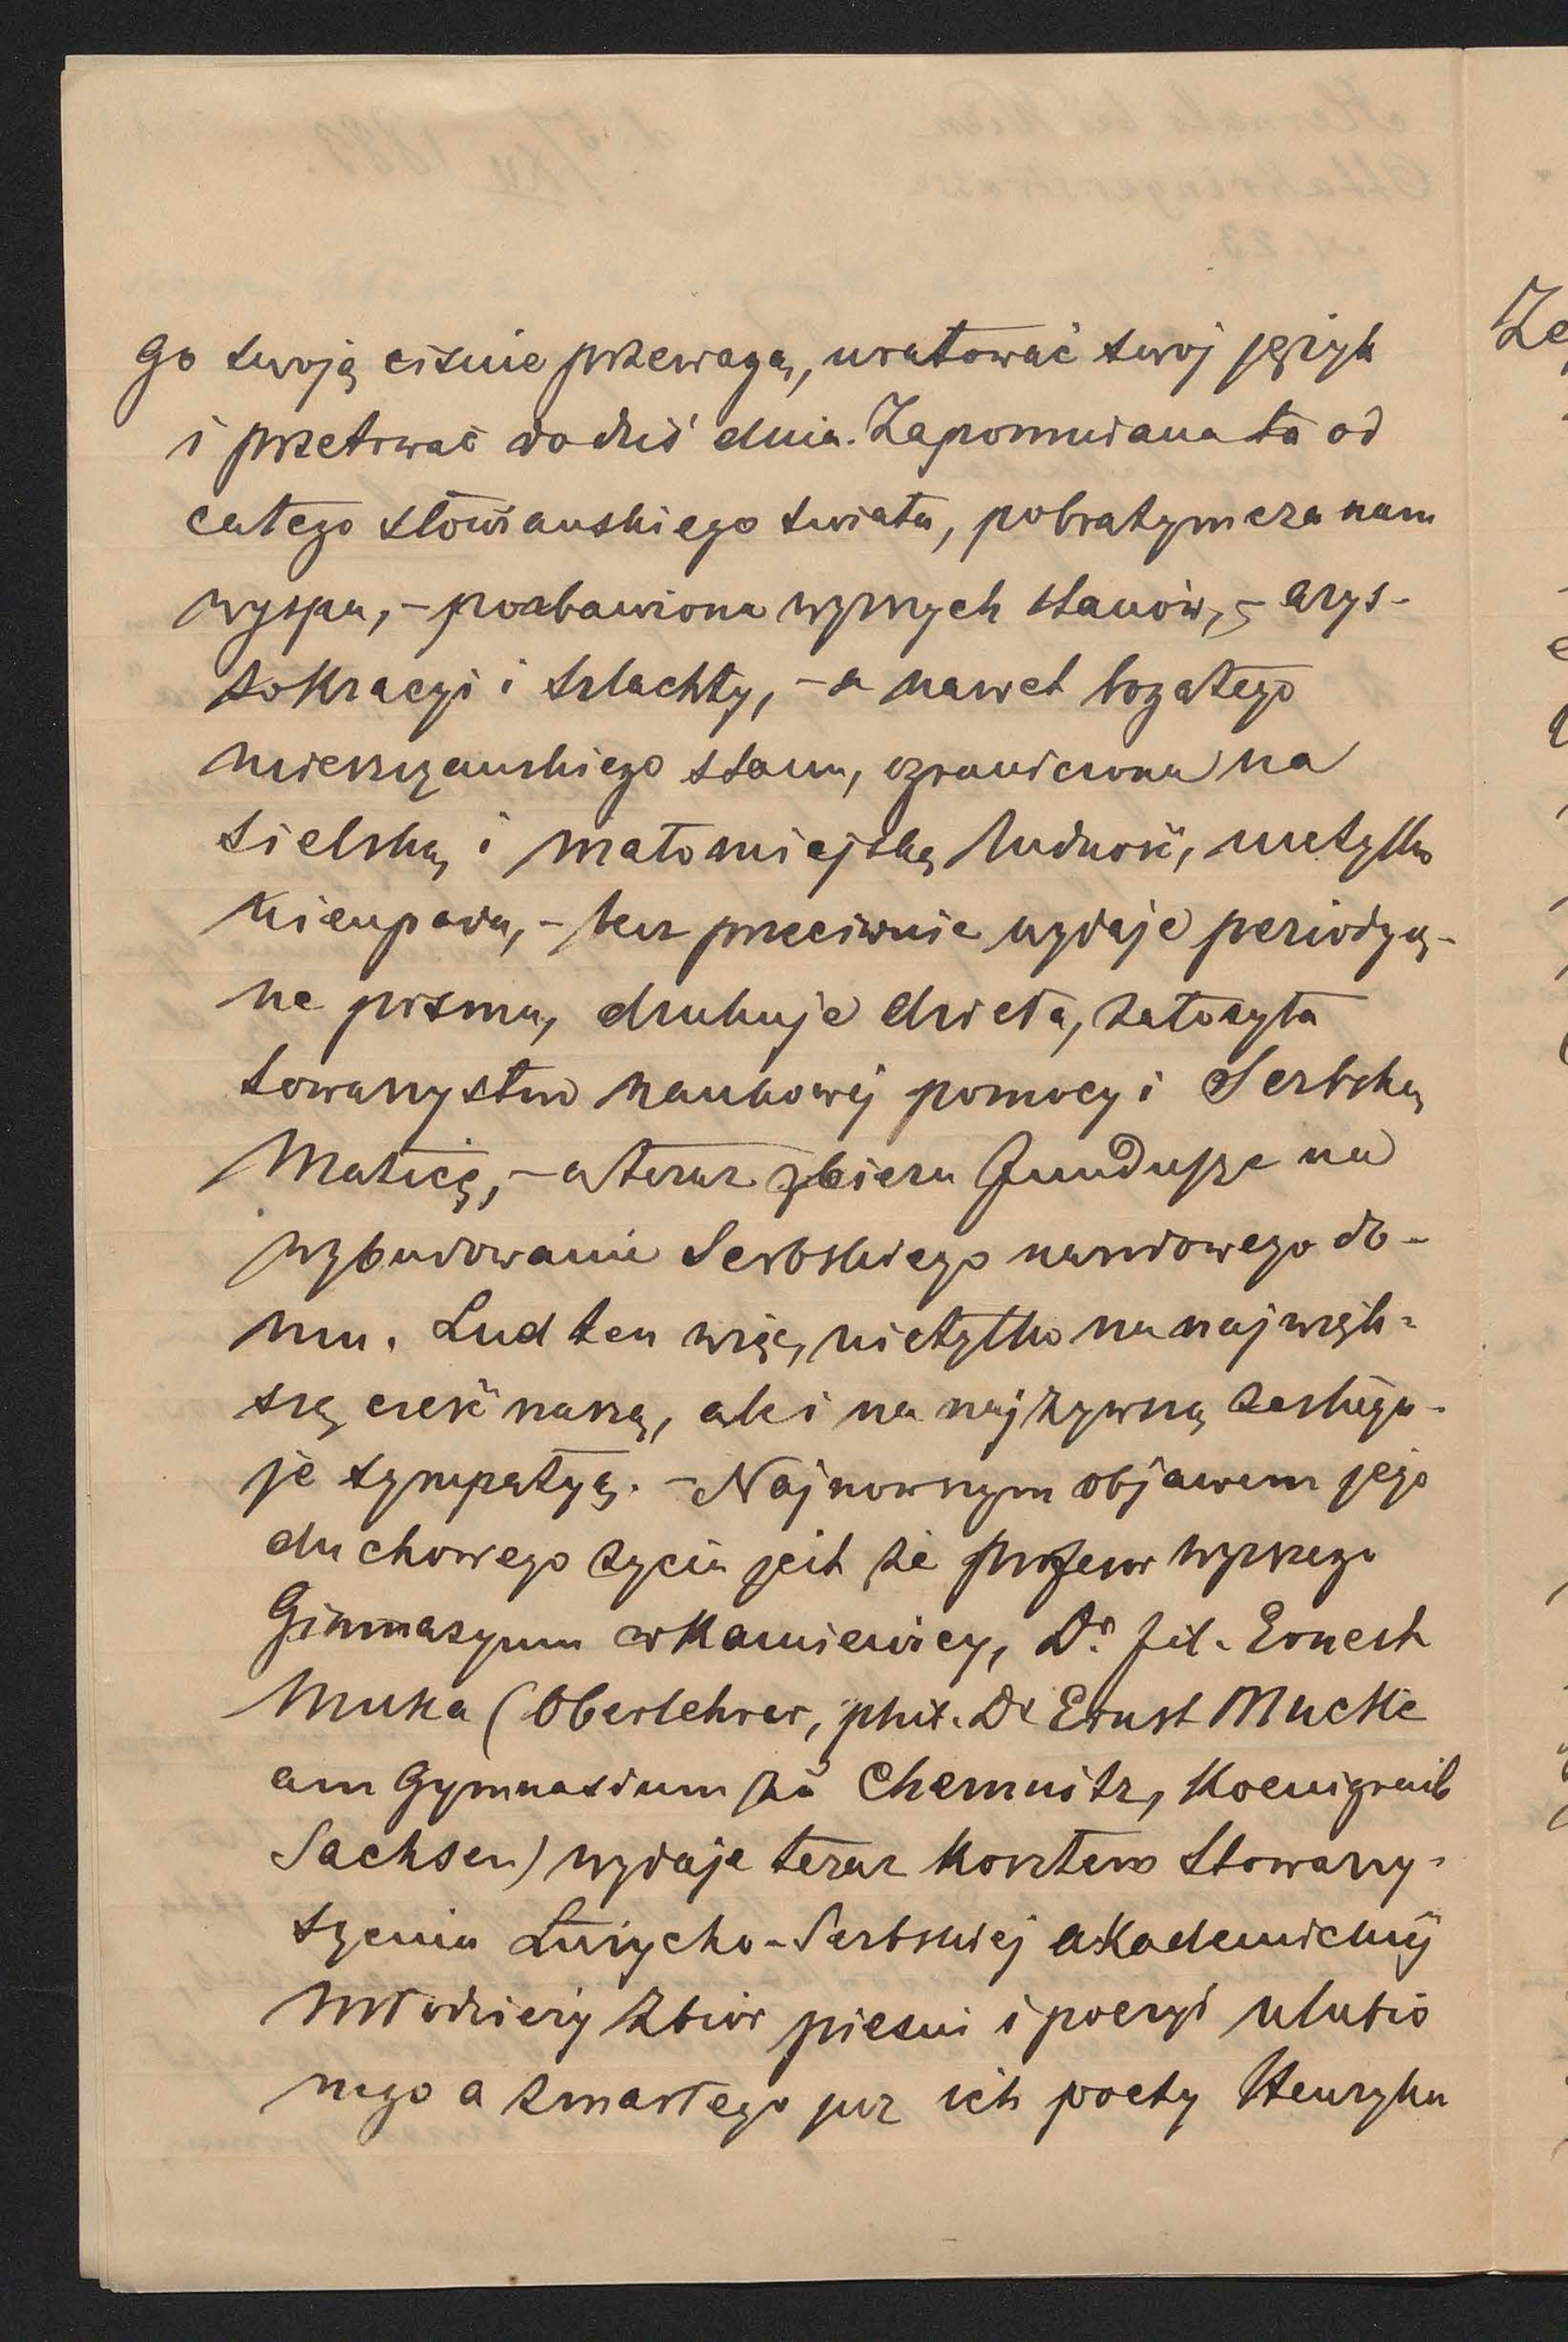 go swoją ciśnie przewagą, uratować swój język
i przetrwać do dziś dnia. Zapomniana ta od
całego słowiańskiego świata, pobratymcza nam
wyspa, – pozbawiona wyższych stanów, – arys-
tokracyi i szlachty, – a nawet bogatego
mieszczańskiego stanu, ograniczona na
sielską i małomiejską ludność, nietylko
nieupada, – lecz przeciwnie wydaje periodycz-
ne pisma, drukuje dzieła, założyła
towarzystwo naukowéj pomocy i Serbską
Maticę, – a teraz zbiera fundusze na
wybudowanie Serbskiego narodowego do-
mu. Lud ten więc, nietylko na najwięk-
szą cześć naszą, ale i na najżywszą zasługu-
je sympatyą. – Najnowszym objawem jego
duchowego życia jest że profesor wyższego
Gimnazyum w Kamienicy, Dr. fil. Ernest
Muka (Oberlehrer, phil. Dr Ernst Mucke
am Gymnasium zu Chemnitz, Koenigreich
Sachsen) wydaje teraz kosztem Stowarzy-
szenia Łużycko-Serbskiej akademickiéj
młodzieży zbiór pieśni i poezyi ulubio
nego a zmarłego już ich poety Henryka
Ze